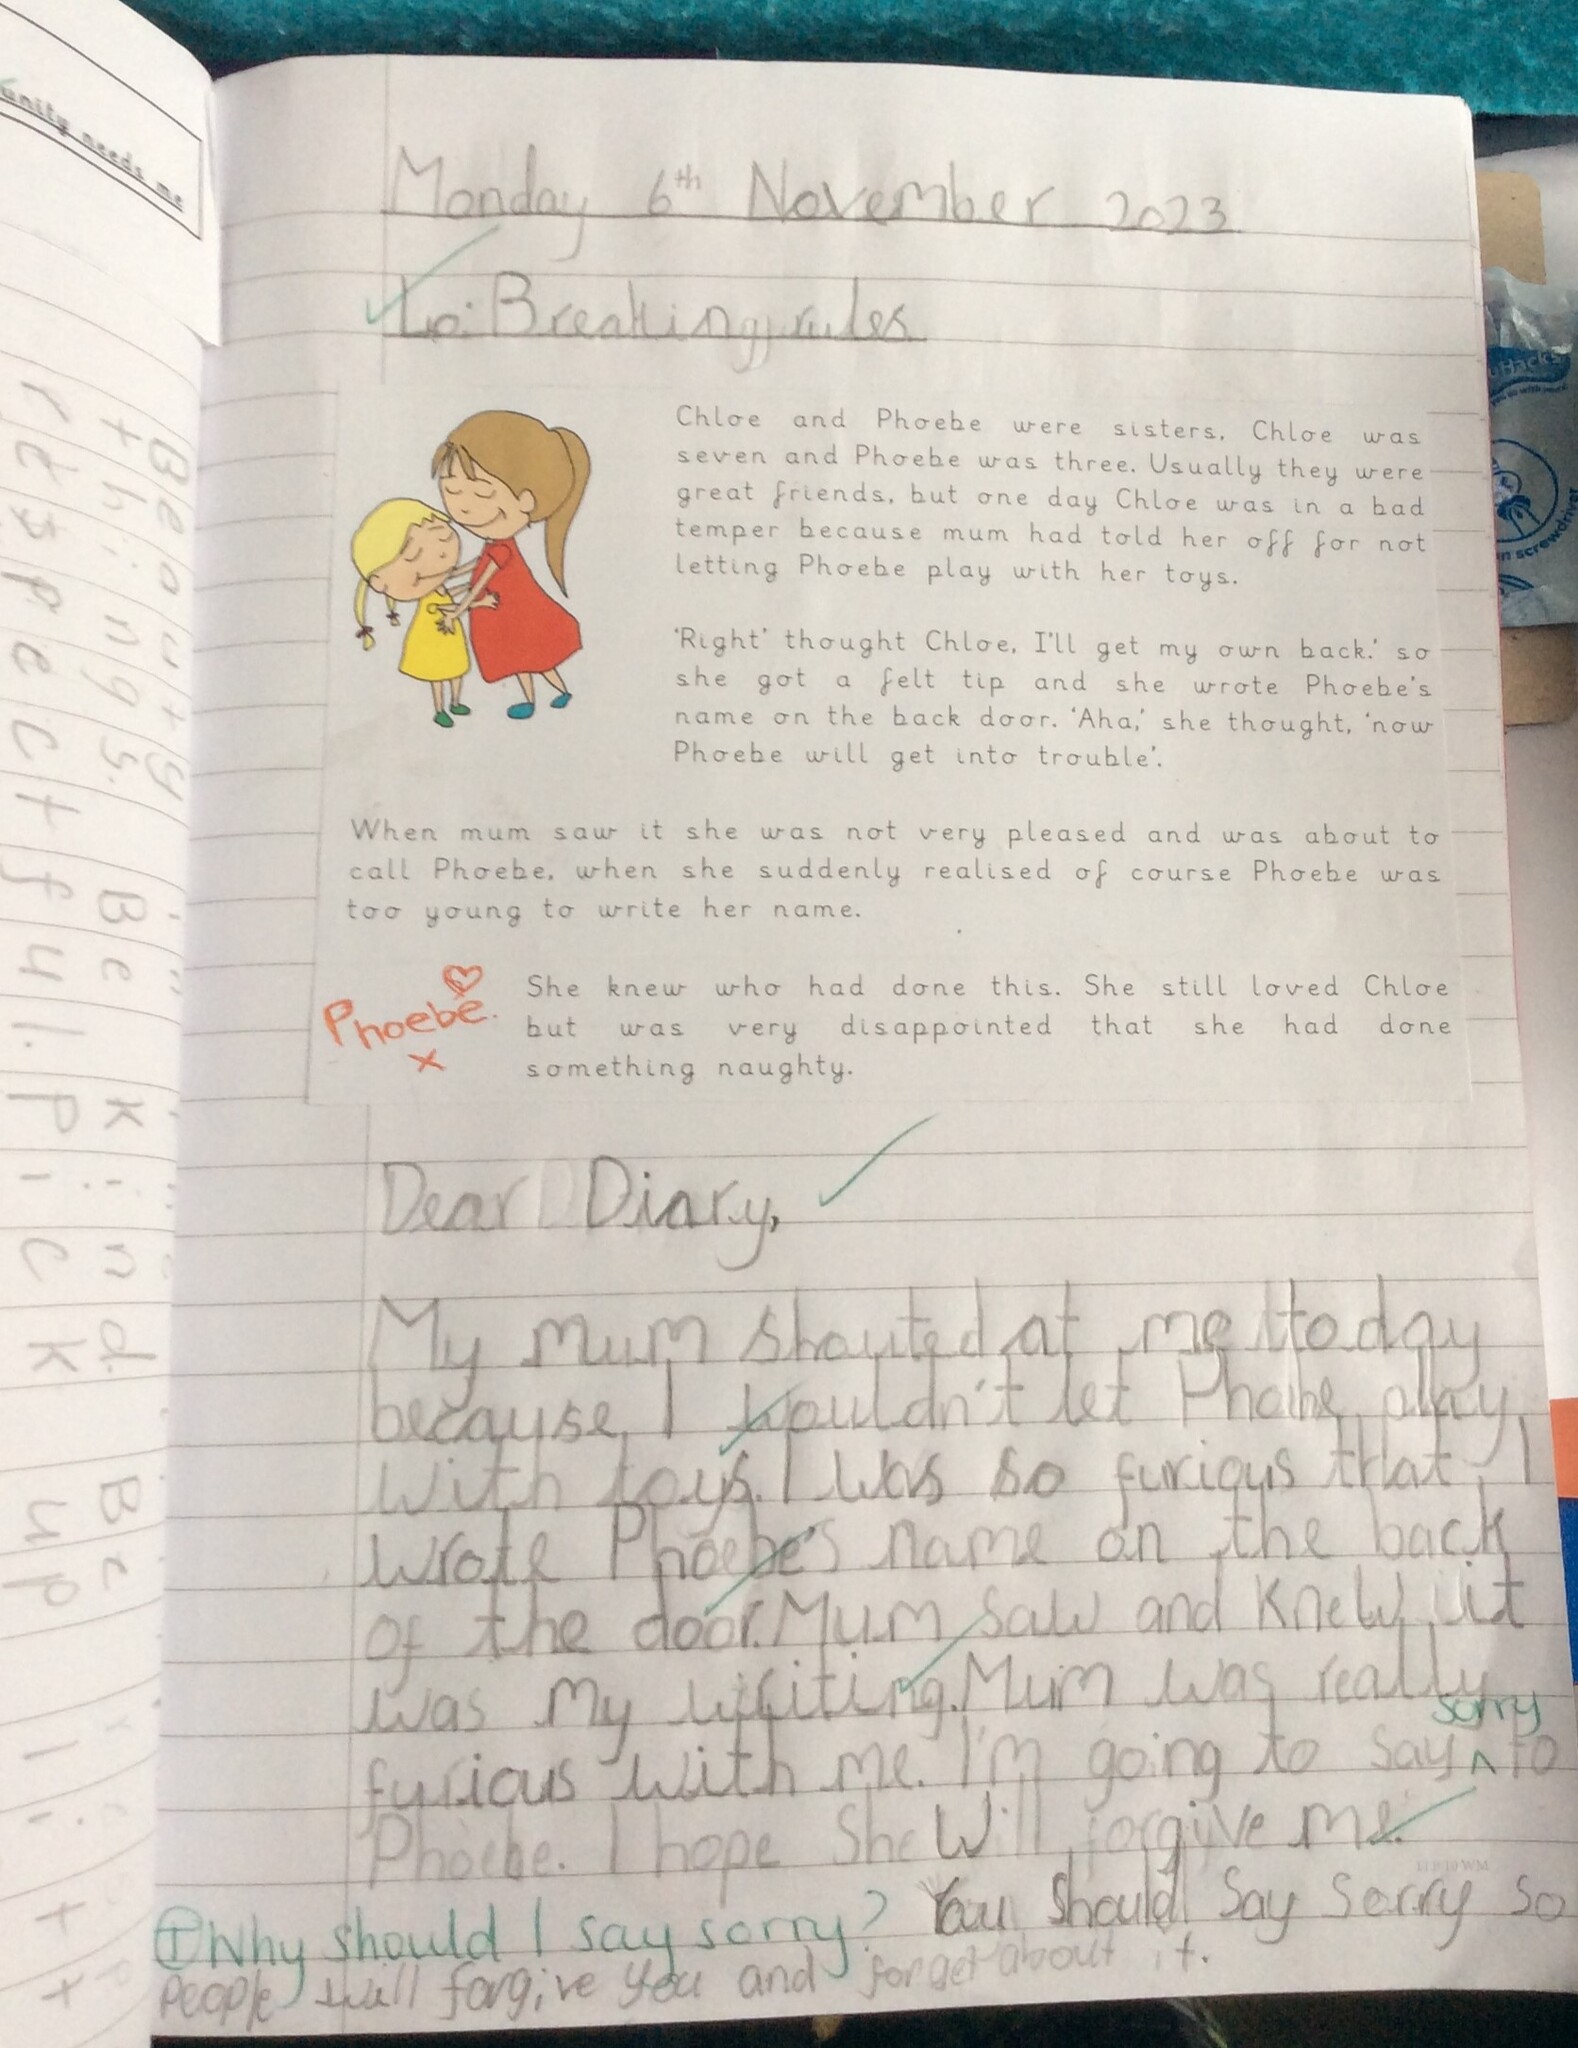 unity needs me
Beauty
things. Be kind. Be
respectful. Pick up
Monday 6th November 2023
Lo: Breaking rules
Chloe and Phoebe were sisters. Chloe was
seven and Phoebe was three. Usually they were
great friends, but one day Chloe was in a bad
temper because mum had told her off for not
letting Phoebe play with her toys.
'Right' thought Chloe, I'll get my own back.' so
she got a felt tip and she wrote Phoebe's
name on the back door. 'Aha,' she thought, 'now
Phoebe will get into trouble'.
When mum saw it she was not very pleased and was about to
call Phoebe, when she suddenly realised of course Phoebe was
too young to write her name.
Phoebe.
x
She knew who had done this. She still loved Chloe
but was very disappointed that she had done
something naughty.
Dear Diary,
My mum shouted at me today
because I wouldn't let Phoebe play
with toys. I was so furious that I
wrote Phoebe's name on the back
of the door. Mum saw and knew it
was my writing. Mum was really
sorry
furious with me. I'm going to say ^ to
Phoebe. I hope she will forgive me.
T Why should I say sorry? You should say sorry so
people will forgive you and forget about it.
screwdriver